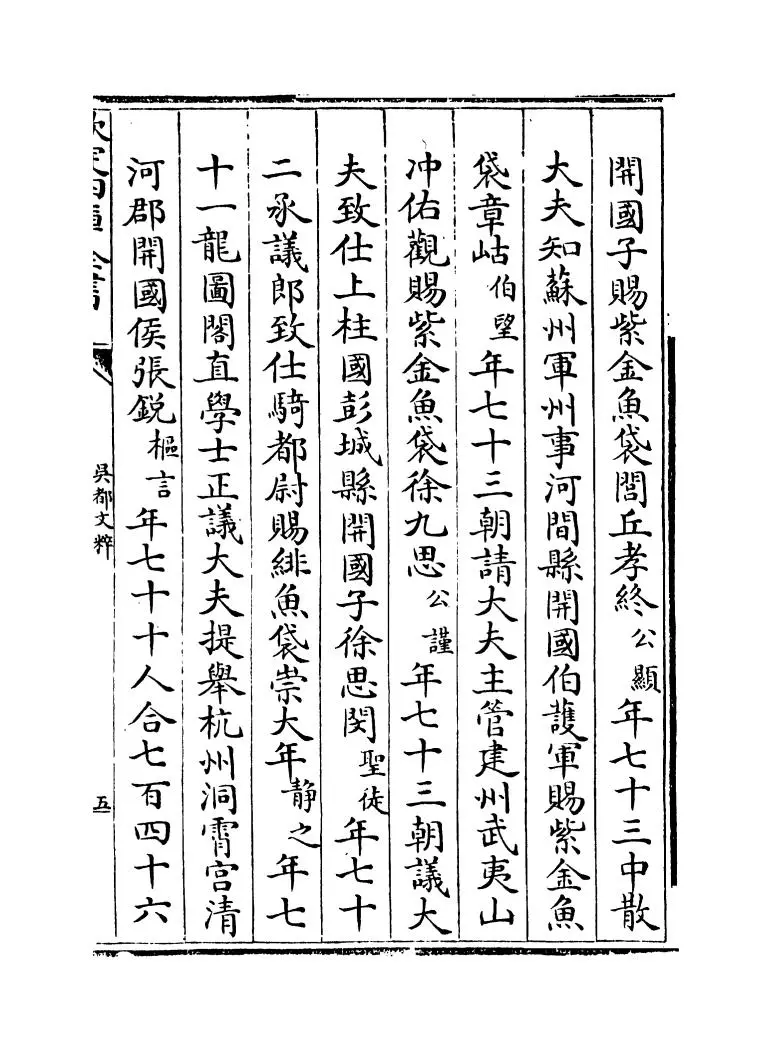 開國子賜紫金魚袋閭丘孝終公顯年七十三中散
大夫知蘇州軍州事河間縣開國伯護軍賜紫金魚
袋章岵伯望年七十三朝請大夫主管建州武夷山
冲佑觀賜紫金魚袋徐九思公謹年七十三朝議大
夫致仕上柱國彭城縣開國子徐思閔聖徒年七十
二承議郎致仕騎都尉賜緋魚袋崇大年静之年七
十一龍圖閣直學士正議大夫提舉杭州洞霄宫清
河郡開國侯張銳樞言年七十十人合七百四十六
欽定四庫全書
吳都文粹
五